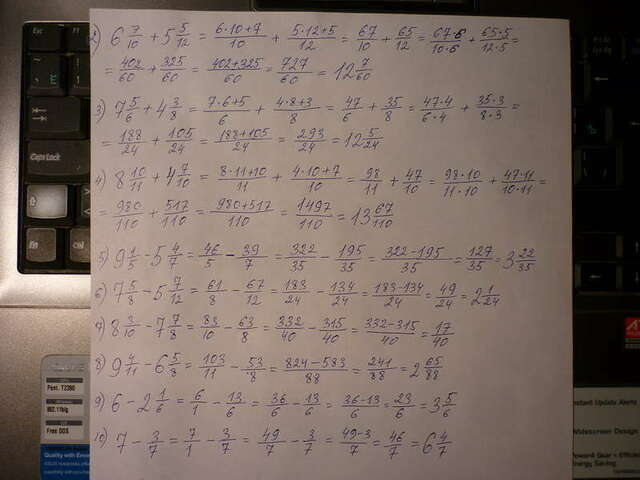 2) 6 7/10 + 5 5/12 = (6·10+7)/10 + (5·12+5)/12 = 67/10 + 65/12 = (67·6)/(10·6) + (65·5)/(12·5) =
= 402/60 + 325/60 = (402+325)/60 = 727/60 = 12 7/60
3) 7 5/6 + 4 3/8 = (7·6+5)/6 + (4·8+3)/8 = 47/6 + 35/8 = (47·4)/(6·4) + (35·3)/(8·3) =
= 188/24 + 105/24 = (188+105)/24 = 293/24 = 12 5/24
4) 8 10/11 + 4 7/10 = (8·11+10)/11 + (4·10+7)/10 = 98/11 + 47/10 = (98·10)/(11·10) + (47·11)/(10·11) =
= 980/110 + 517/110 = (980+517)/110 = 1497/110 = 13 67/110
5) 9 1/5 - 5 4/7 = 46/5 - 39/7 = 322/35 - 195/35 = (322-195)/35 = 127/35 = 3 22/35
6) 7 5/8 - 5 7/12 = 61/8 - 67/12 = 183/24 - 134/24 = (183-134)/24 = 49/24 = 2 1/24
7) 8 3/10 - 7 7/8 = 83/10 - 63/8 = 332/40 - 315/40 = (332-315)/40 = 17/40
8) 9 4/11 - 6 5/8 = 103/11 - 53/8 = (824-583)/88 = 241/88 = 2 65/88
9) 6 - 2 1/6 = 6/1 - 13/6 = 36/6 - 13/6 = (36-13)/6 = 23/6 = 3 5/6
10) 7 - 3/7 = 7/1 - 3/7 = 49/7 - 3/7 = (49-3)/7 = 46/7 = 6 4/7
Esc
F1
Caps Lock
Shift
Fn
Ctrl
Pent. T2390
802.11b/g
Free DOS
ATI
Instant Update Alerts
Widescreen Design